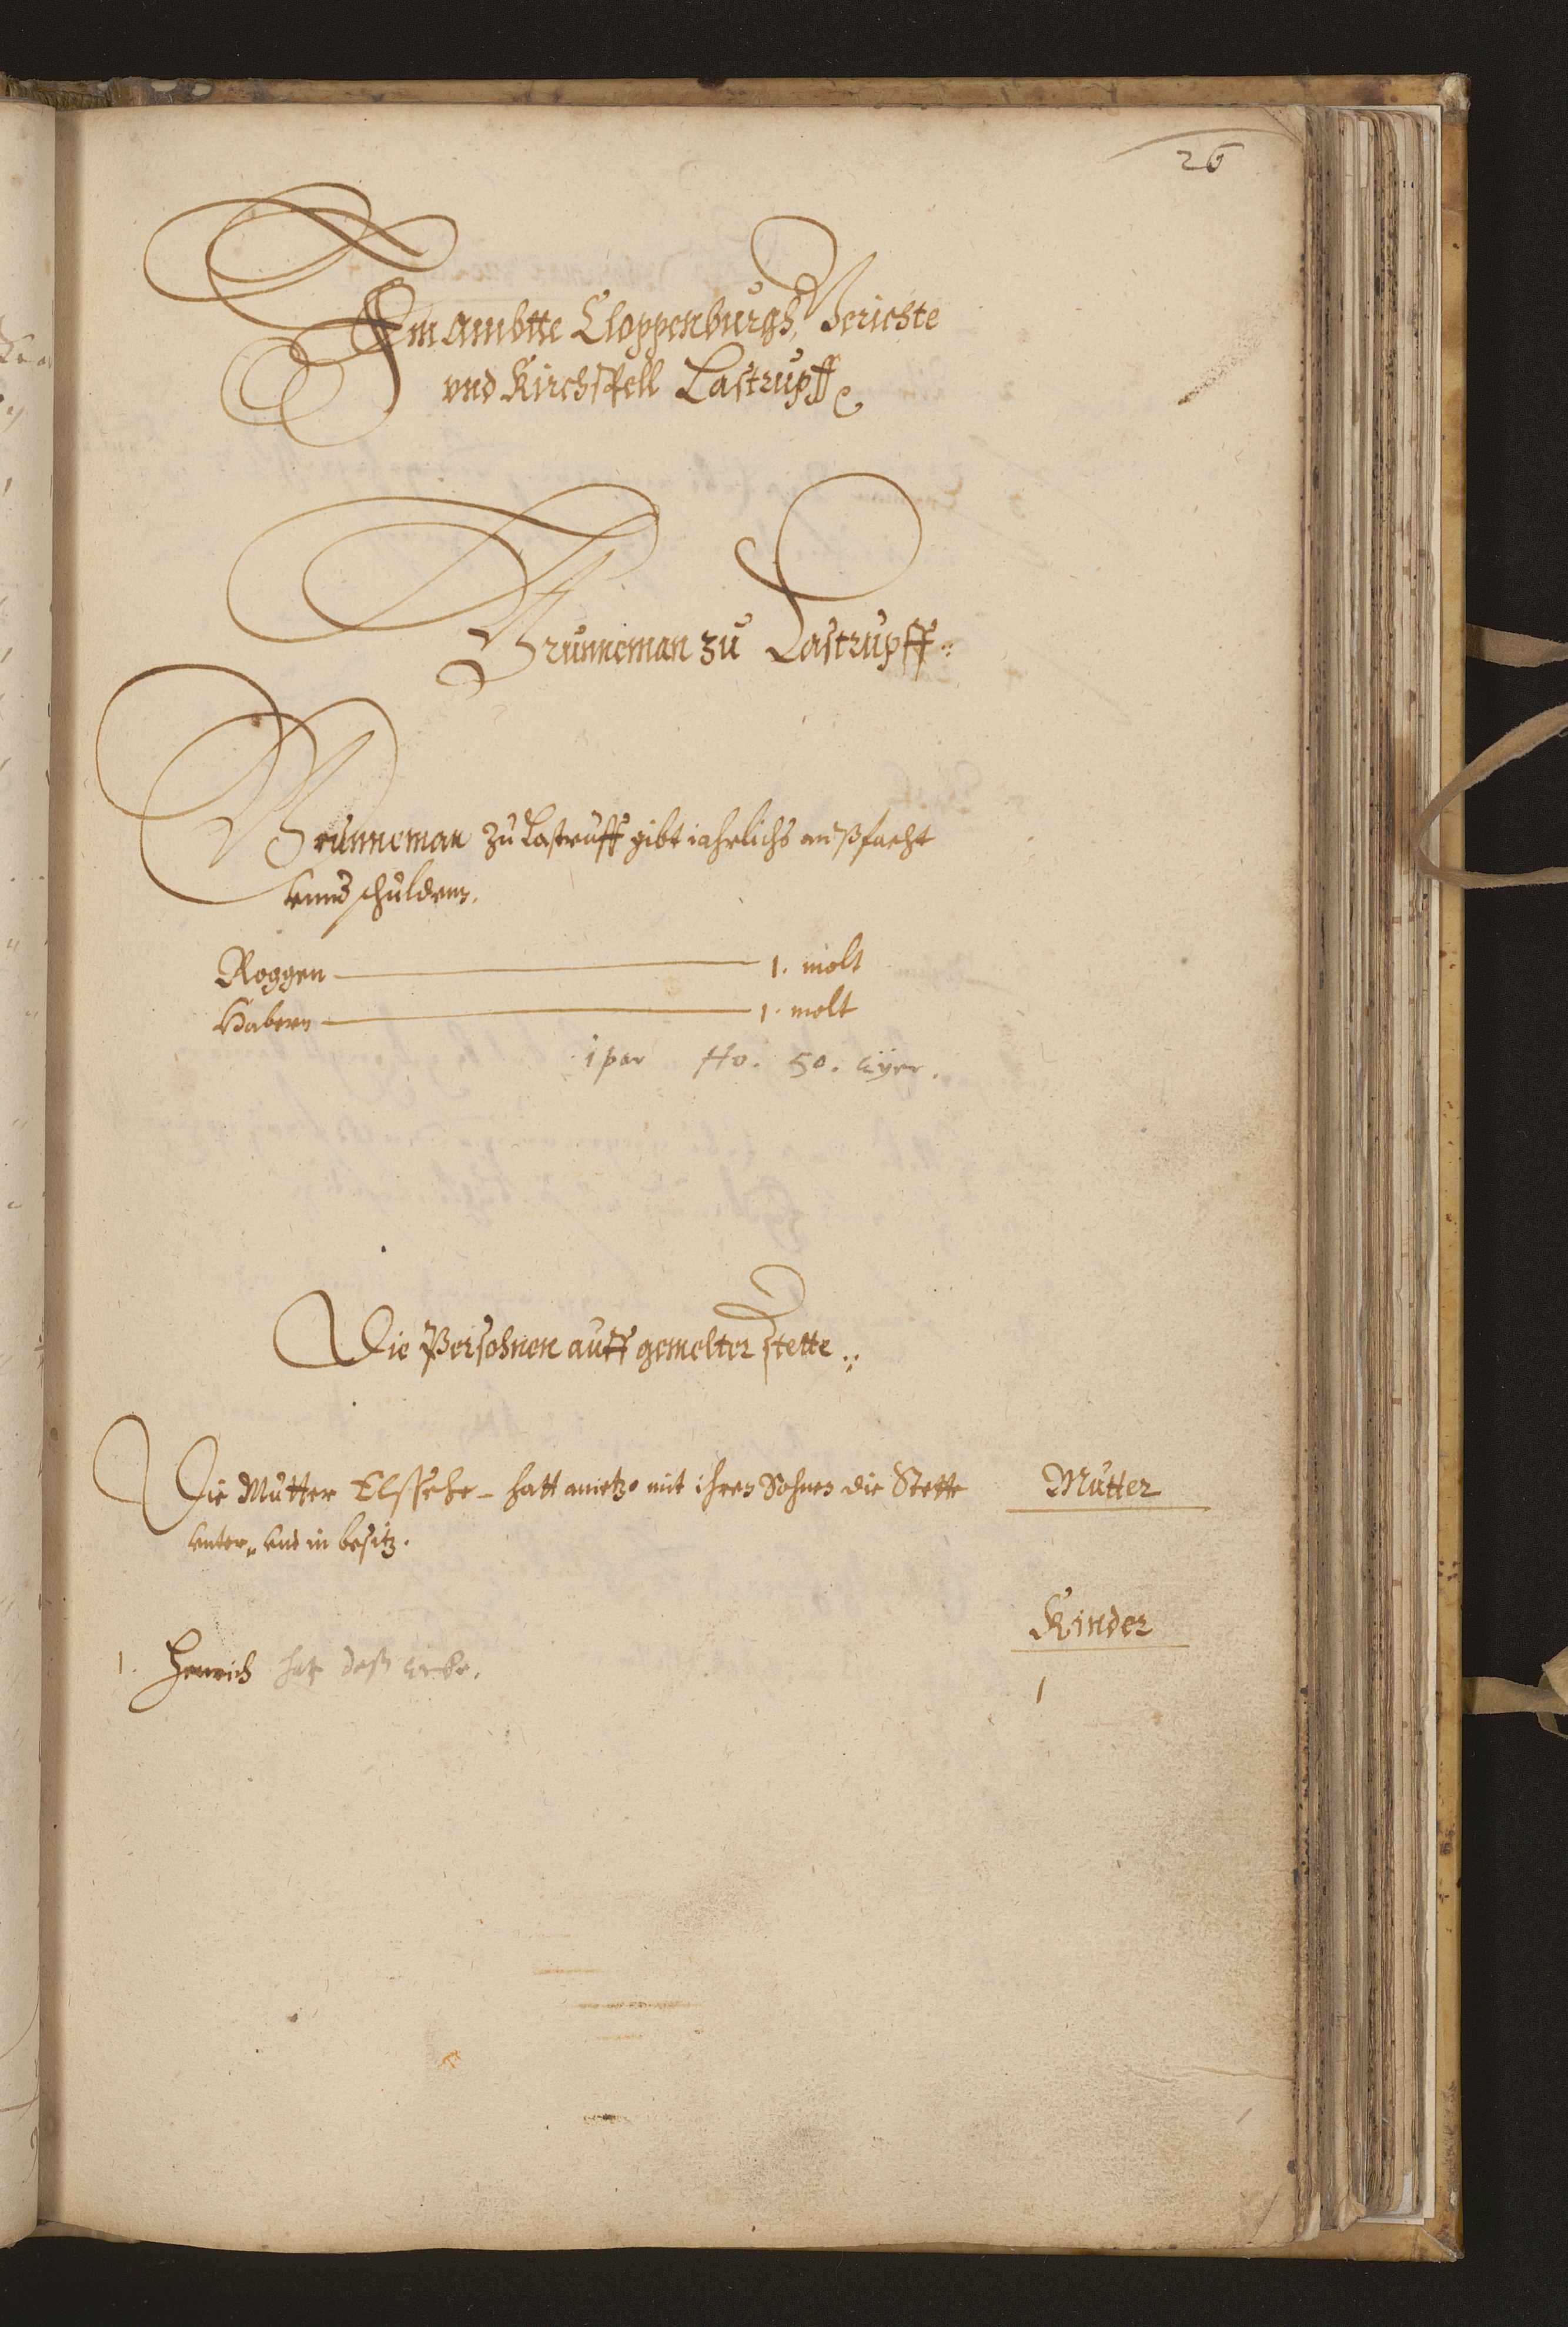 26
Im Ambtte Cloppenburgh, Gerichte
vnd Kirchspell Lastrupff
Brunneman zu Lastrupff
Brunneman zu Lastruff gibt iahrlichs außfacht
vnnd schulden.
Roggen 1. molt
Habern 1. molt
1 par Ho. 50. Eÿer.
Die Persohnen auff gemelter stette
Die Mutter Elssche hatt anietzo mit ihren Sohnen die Stette
vnter vnd in besitz.
Mutter
Kinder
1. Henrich hatt daß Erbe.
1